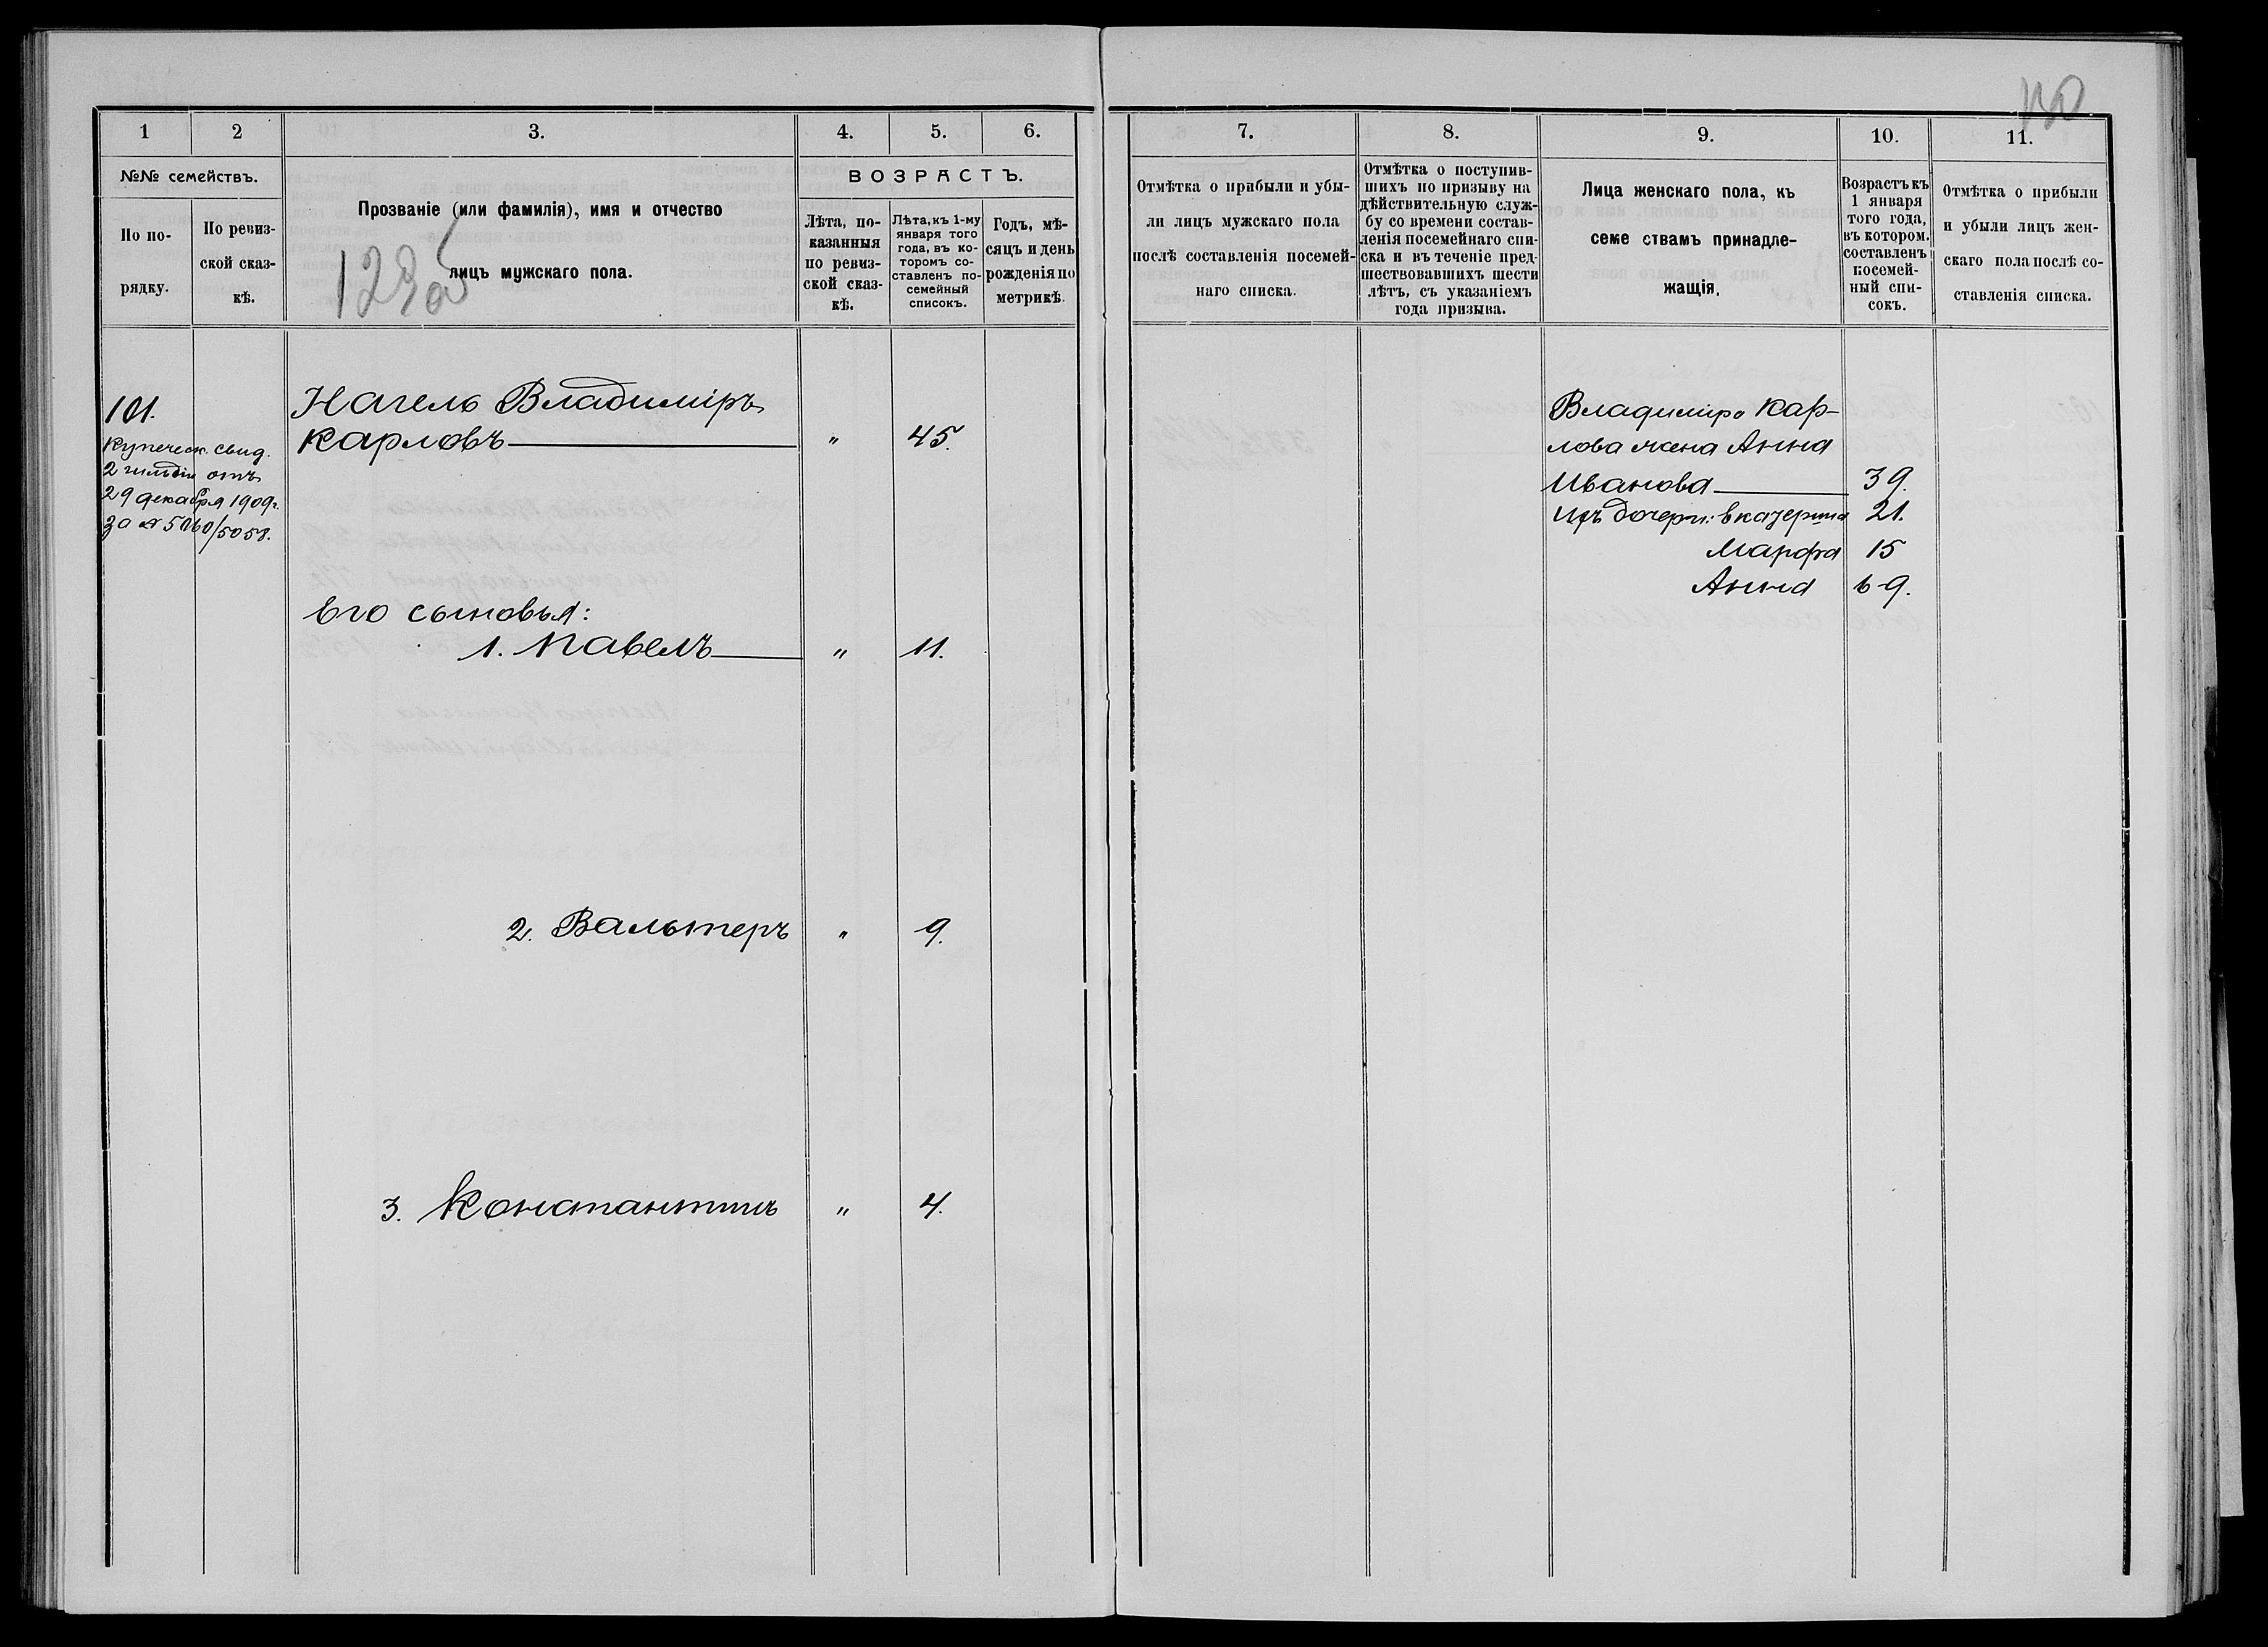 130
1
2
3.
4.
5.
6.
7.
8.
9.
10.
11.
№№ семействъ.
По по-
рядку.
По ревиз-
ской сказ-
кѣ.
Прозваніе (или фамилія), имя и отчество
лицъ мужскаго пола.
ВОЗРАСТЪ.
Лѣта, по-
казанныя
по ревиз-
ской сказ-
кѣ.
Лѣта, къ 1-му
января того
года, въ ко-
торомъ со-
ставленъ по-
семейный
списокъ.
Годъ, мѣ-
сяцъ и день
рожденія по
метрикѣ.
Отмѣтка о прибыли и убы-
ли лицъ мужскаго пола
послѣ составленія посемей-
наго списка.
Отмѣтка о поступив-
шихъ по призыву на
дѣйствительную служ-
бу со времени состав-
ленія посемейнаго спи-
ска и въ теченіе пред-
шествовавшихъ шести
лѣтъ, съ указаніемъ
года призыва.
Лица женскаго пола, къ
семе ствамъ принадле-
жащія.
Возрастъ къ
1 января
того года,
въ котором.
составленъ
посемей-
ный спи-
сокъ.
Отмѣтка о прибыли
и убыли лицъ жен-
скаго пола послѣ со-
ставленія списка.
101.
Купеческ. свид.
2 гильдіи отъ
29 декабря 1909г.
за № 5060/5058.
Нагель Владиміръ
Карловъ " 45.
Его сыновья:
1. Павелъ " 11.
2. Вальтеръ " 9.
3. Константинъ " 4.
Владиміра Кар-
лова жена Анна
Иванова 39.
Ихъ дочери: Екатерина 21.
Марфа 15
Анна 6-9.